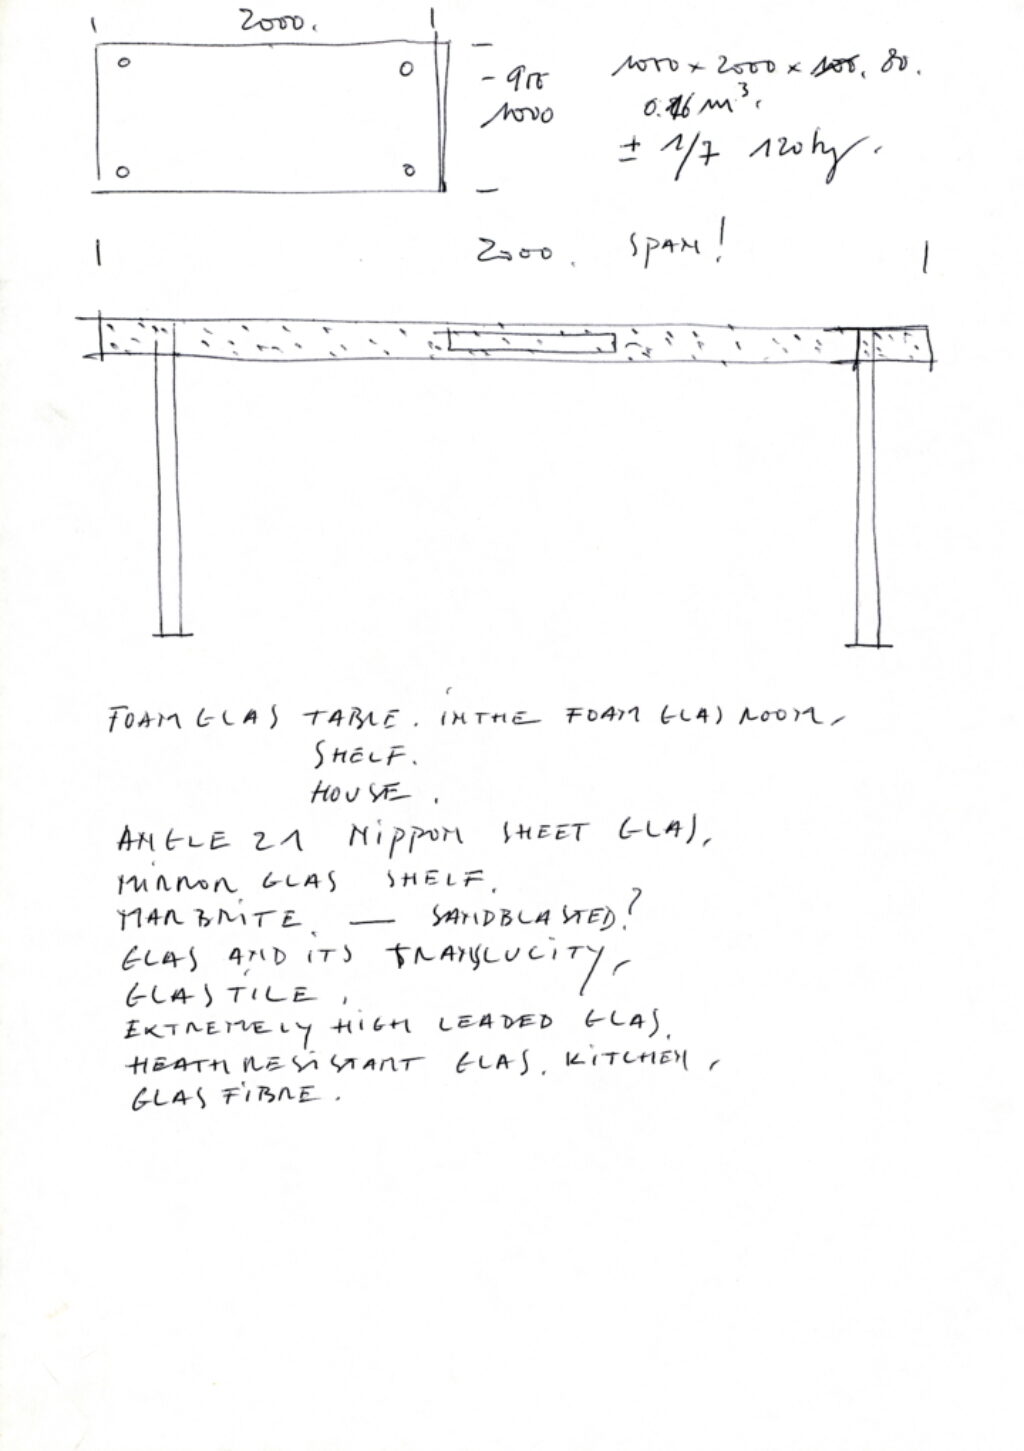 2000.
- 900
1000
1000 x 2000 x 100. 80.
0.16 m³.
± 1/7 120 kg.
2000. SPAN!
FOAM GLAS TABLE. IN THE FOAM GLAS ROOM.
SHELF.
HOUSE.
ANGLE 21 NIPPON SHEET GLAS.
MIRROR GLAS SHELF.
MARBRITE. — SANDBLASTED?
GLAS AND ITS TRANSLUCITY.
GLAS TILE.
EXTREMELY HIGH LEADED GLAS.
HEATH RESISTANT GLAS. KITCHEN.
GLAS FIBRE.